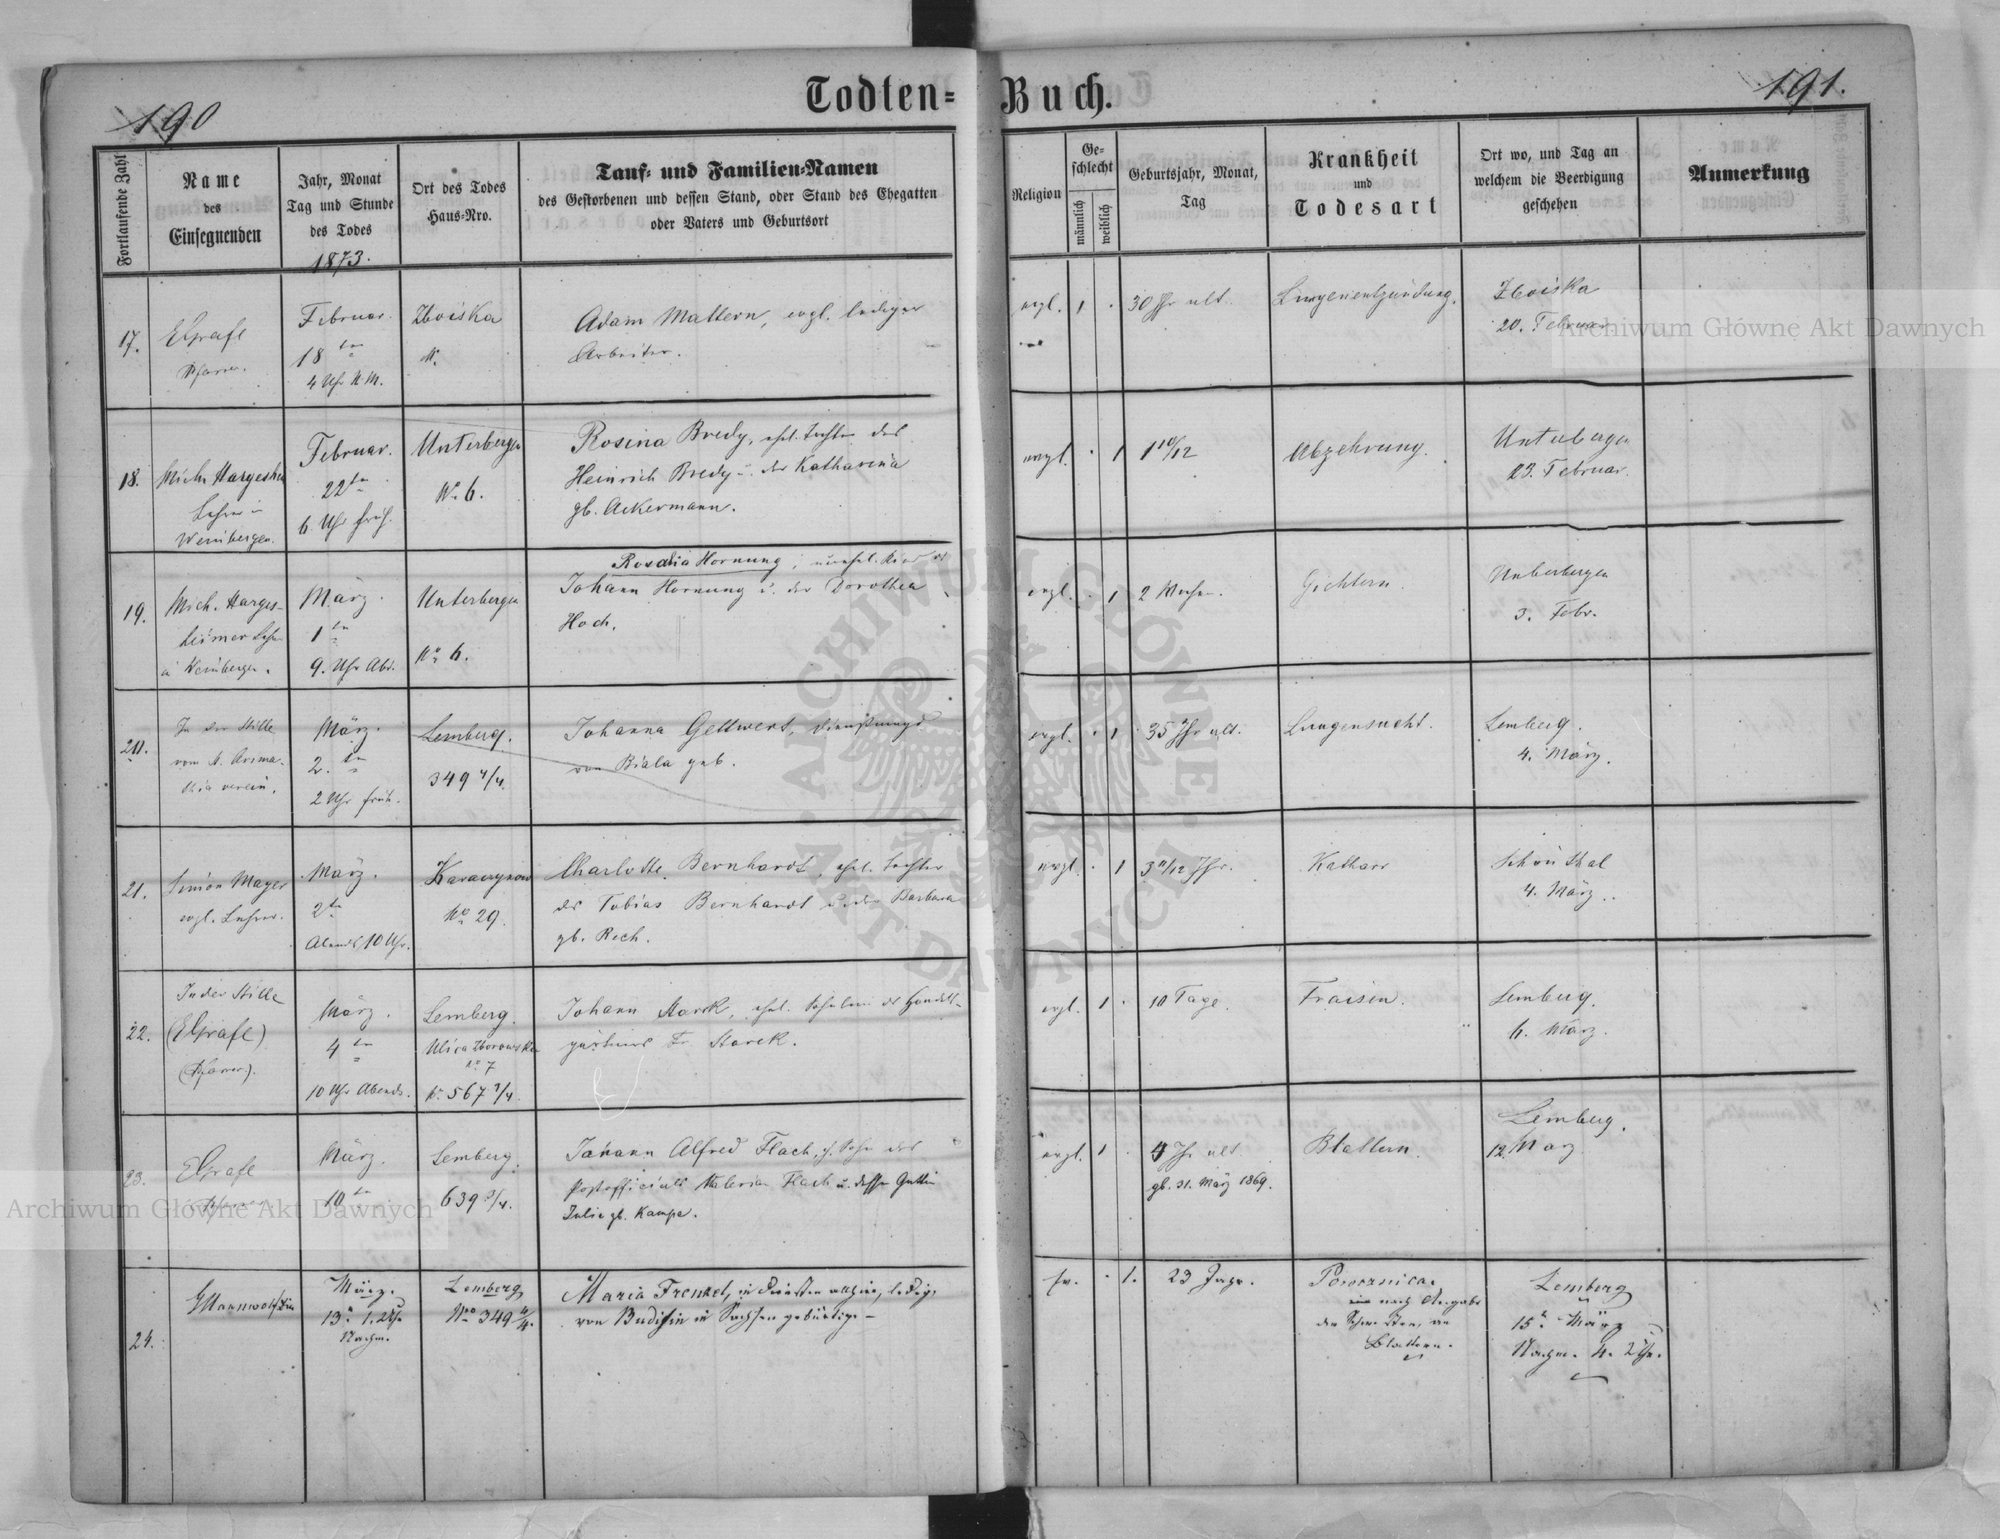 190
Todten-Buch.
191.
Fortlaufende Zahl
Name
des
Einsegnenden
Jahr, Monat
Tag und Stunde
des Todes
1873.
Ort des Todes
Haus-Nro.
Tauf- und Familien-Namen
des Gestorbenen und dessen Stand, oder Stand des Ehegatten
oder Vaters und Geburtsort
Religion
Ge-
schlecht
männlich
weiblich
Geburtsjahr, Monat,
Tag
Krankheit
und
Todesart
Ort wo, und Tag an
welchem die Beerdigung
geschehen
Anmerkung
17.
EGrafe
Pfarrer.
Februar.
18ten
4 Uhr N.M.
Zboiska
N.
Adam Mattern, evgl. lediger
Arbeiter.
evgl.
1
30 Jhr alt.
Lungenentzündung.
Zboiska
20. Februar
18.
Mich.
Lehrer in
Weinbergen.
Februar.
22ten
6. Uhr früh.
Unterbergen
No 6.
Rosina Bredy, ehel. Tochter des
Heinrich Bredy u. der Katharina
gb. Ackermann.
evgl.
1
1 10/12
Abzehrung.
Unterbergen
23. Februar.
19.
Mich. Harges-
heimer Lehr.
in Weinbergen.
März.
1ten
9. Uhr Abd.
Unterbergen
No 6.
Rosalia Hornung, unehel. Kind des
Johann Hornung u. der Dorothea
Hoch.
evgl.
1
2 Wochen.
Gichtern.
Unterbergen
3. Febr.
20.
In der Stille
vom
verein.
März.
2. ten
2 Uhr früh.
Lemberg.
349 4/4.
Johanna Gellwert, Dienstmagd
von Biala geb.
evgl.
1
35 Jhr alt.
Lungensucht.
Lemberg.
4. März.
21.
Simon Mayer
evgl. Lehrer.
März.
2ten
Abends 10 Uhr.
No 29.
Charlotte Bernhardt, ehel. Tochter
des Tobias Bernhardt u. der Barbara
gb. Rech.
evgl.
1
3 11/12 Jhr.
Katharr
Schönthal
4. März.
22.
In der Stille
(EGrafe)
(Pfarrer).
März.
4 ten
10 Uhr Abends.
Lemberg.
Ulica
No 7
N. 567 2/4.
Johann Starck, ehel. Söhnlein des Handels-
gärtners Fr. Starck.
evgl.
1
10 Tage.
Fraisen.
Lemberg.
6. März.
23.
EGrafe
Pfarrer
März.
10ten
Lemberg.
639 3/4.
Johann Alfred Flach, eh. Sohn des
Postofficials Valerian Flach u. dessen Gattin
Julie gb. Kampe.
evgl.
1
4 Jhr alt
gb. 31. März 1869.
Blattern.
Lemberg.
12. März
24.
März.
13. 1. Uhr
Nachm.
Lemberg
No 349 4/4.
Maria Frenzel, in Diensten allhier, ledig,
von Budissin in Sachsen gebürtig.
ev.
1.
23 Jahr.
nach Angabe
der Schwestern, an
Blattern.
Lemberg
15. März
Nachm. 4. Uhr.
Archiwum Główne Akt Dawnych
Archiwum Główne Akt Dawnych
ARCHIWUM GŁÓWNE AKT DAWNYCH